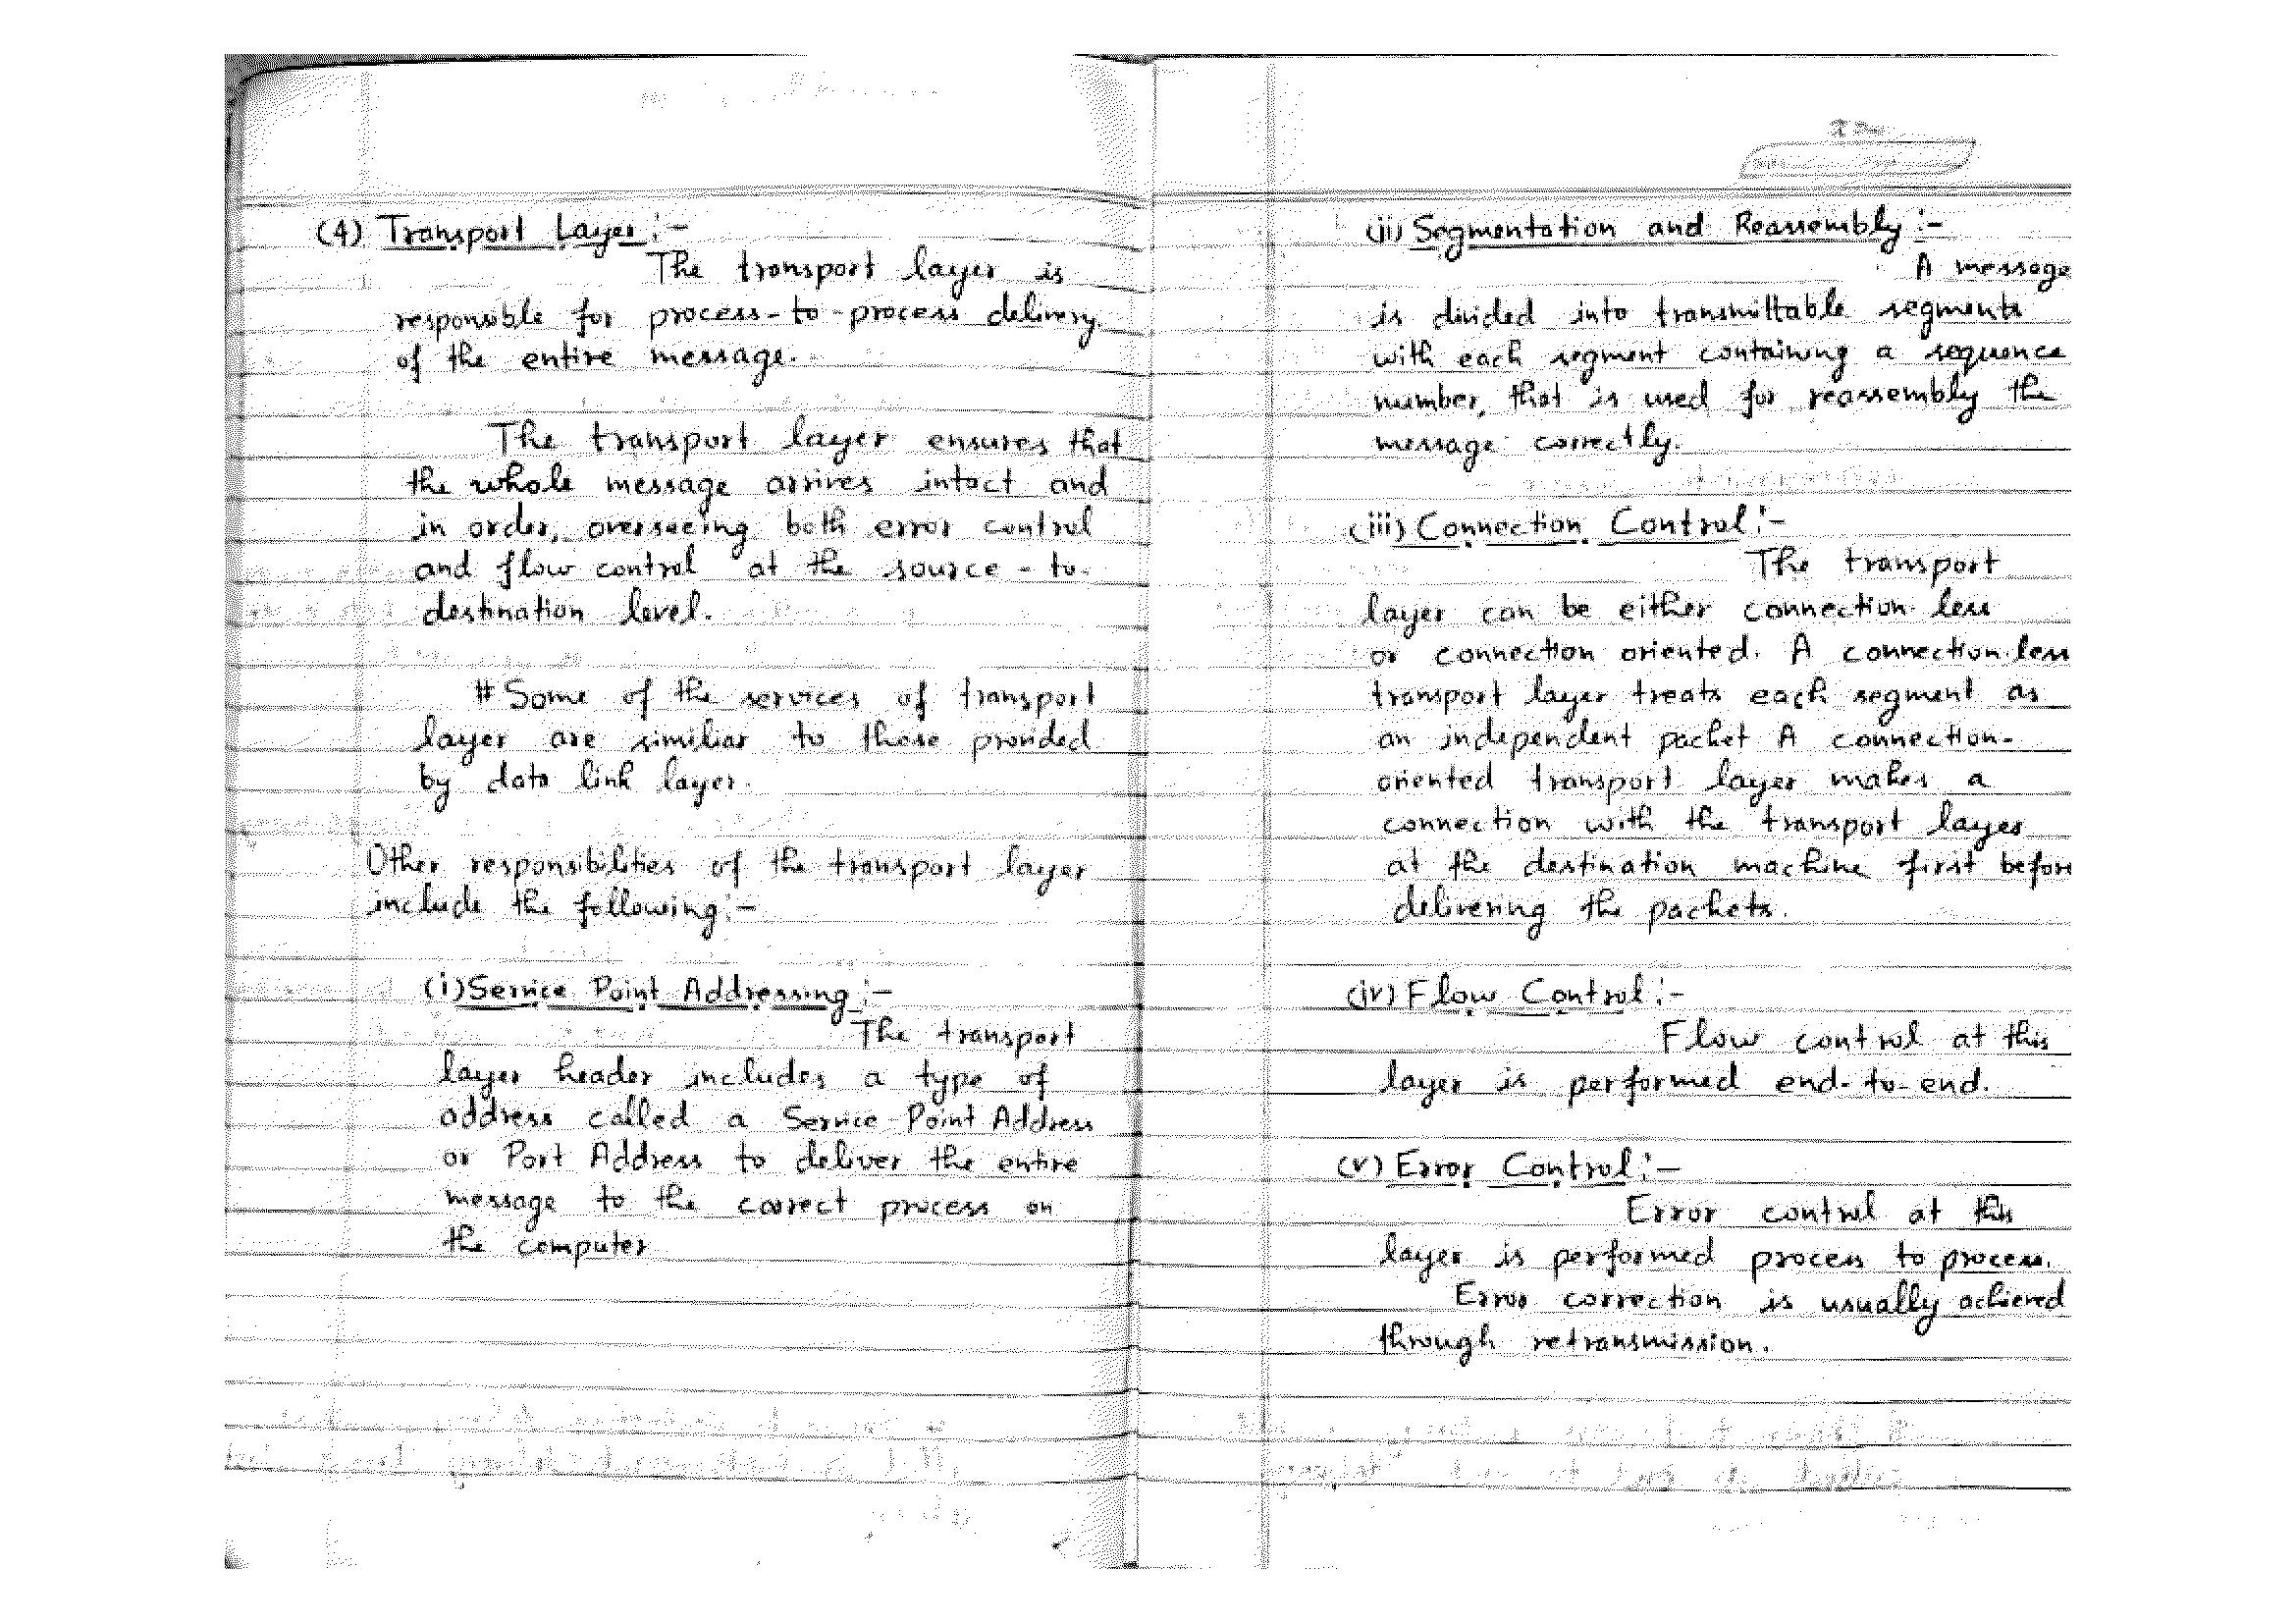 (4) Transport Layer :-
The transport layer is
responsible for process-to-process delivery
of the entire message.
The transport layer ensures that
the whole message arrives intact and
in order, overseeing both error control
and flow control at the source-to-
destination level.
# Some of the services of transport
layer are similiar to those provided
by data link layer.
Other responsibilities of the transport layer
include the following :-
(i) Service Point Addressing :-
The transport
layer header includes a type of
address called a Service Point Address
or Port Address to deliver the entire
message to the correct process on
the computer
(ii) Segmentation and Reassembly :-
A message
is divided into transmittable segments
with each segment containing a sequence
number, that is used for reassembly the
message correctly.
(iii) Connection Control :-
The transport
layer can be either connection less
or connection oriented. A connection less
transport layer treats each segment as
an independent packet A connection-
oriented transport layer makes a
connection with the transport layer
at the destination machine first before
delivering the packets.
(iv) Flow Control :-
Flow control at this
layer is performed end-to-end.
(v) Error Control :-
Error control at this
layer is performed process to process.
Error correction is usually achieved
through retransmission.